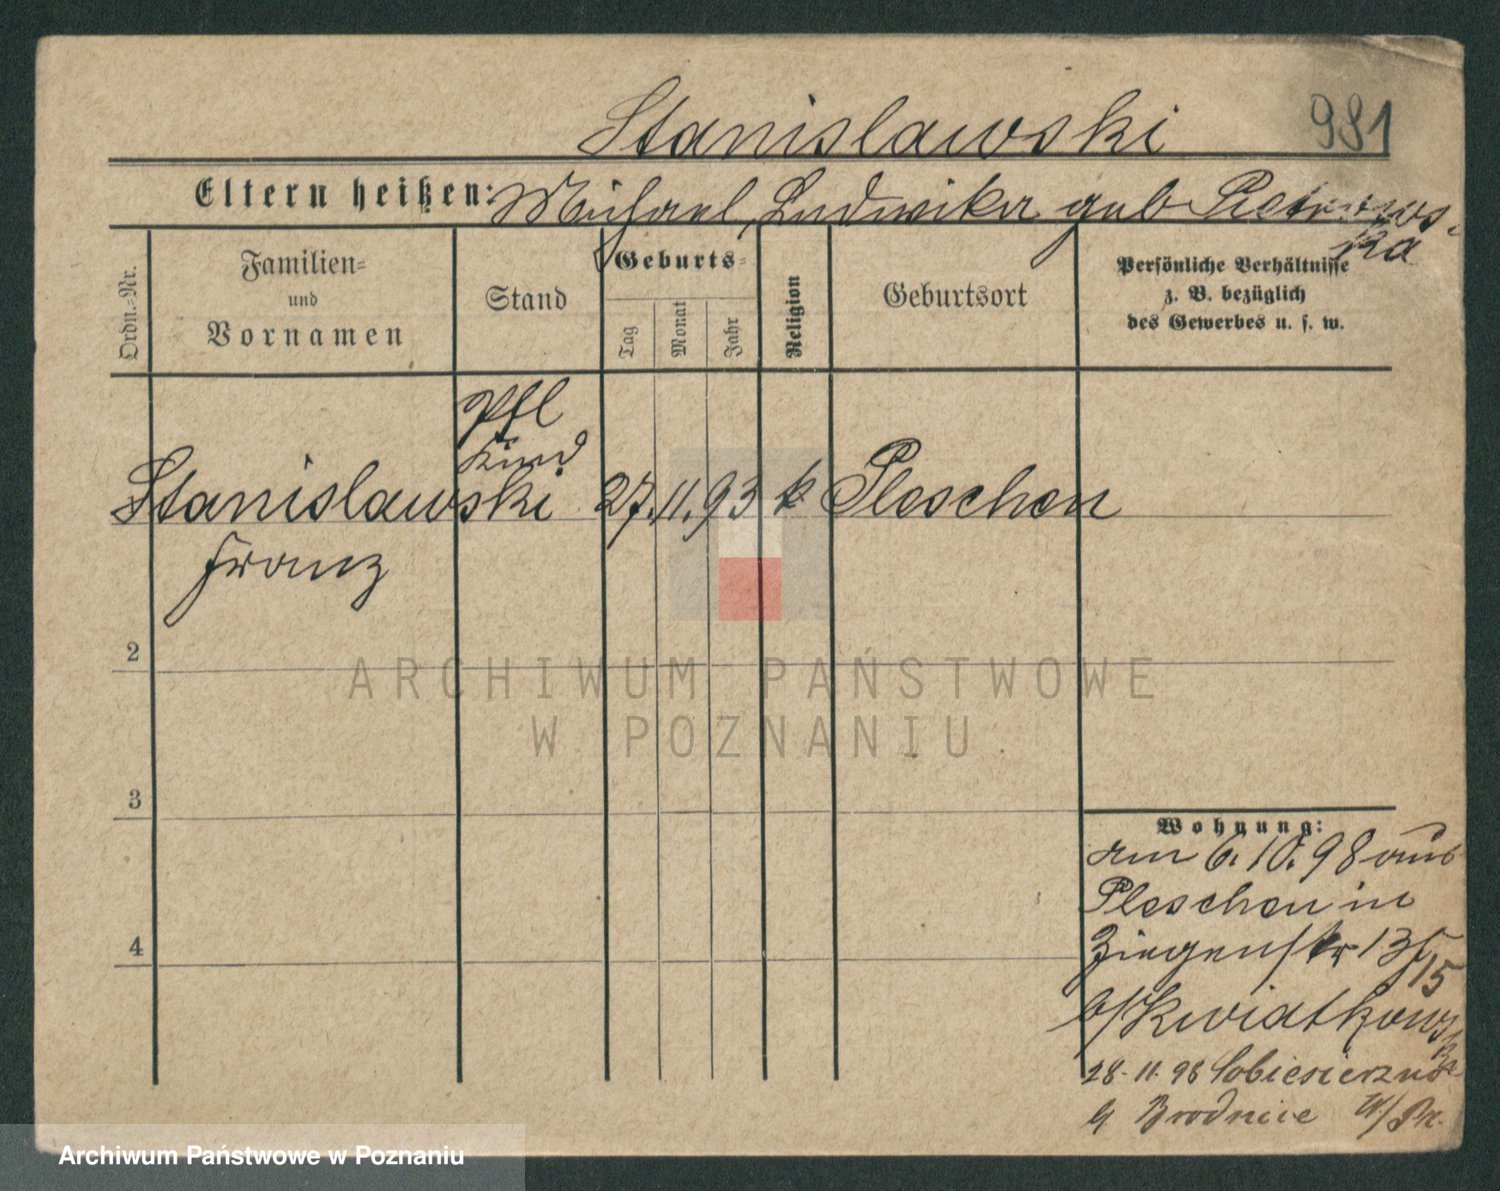 Stanislawski 981
Eltern heißen: Michael, Ludwika geb Pietrows-
ka
Ordn.-Nr.
Familien-
und
Vornamen
Stand
Geburts-
Tag
Monat
Jahr
Religion
Geburtsort
Persönliche Verhältnisse
z. B. bezüglich
des Gewerbes u. s. w.
Pfl
Kind
Stanislawski 27. 11. 93 k Pleschen
Franz
2
3
4
Wohnung:
am 6. 10. 98 aus
Pleschen in
Ziegenstr 13
15
b/ Kwiatkows
ka
28. 11. 98
Brodnice W/Pr.
ARCHIWUM PAŃSTWOWE
W POZNANIU
Archiwum Państwowe w Poznaniu